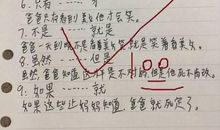 6. 只有……才
爸爸只有看到美女才会笑。
7. 不是……就是
爸爸一天到晚不是看着美女笑就是笑着看美女。
8. 虽然……但是
虽然,爸爸知道这样是不对的,但是他死不悔改。
9. 如果……就
如果这些让妈妈知道,爸爸就死定了。
100